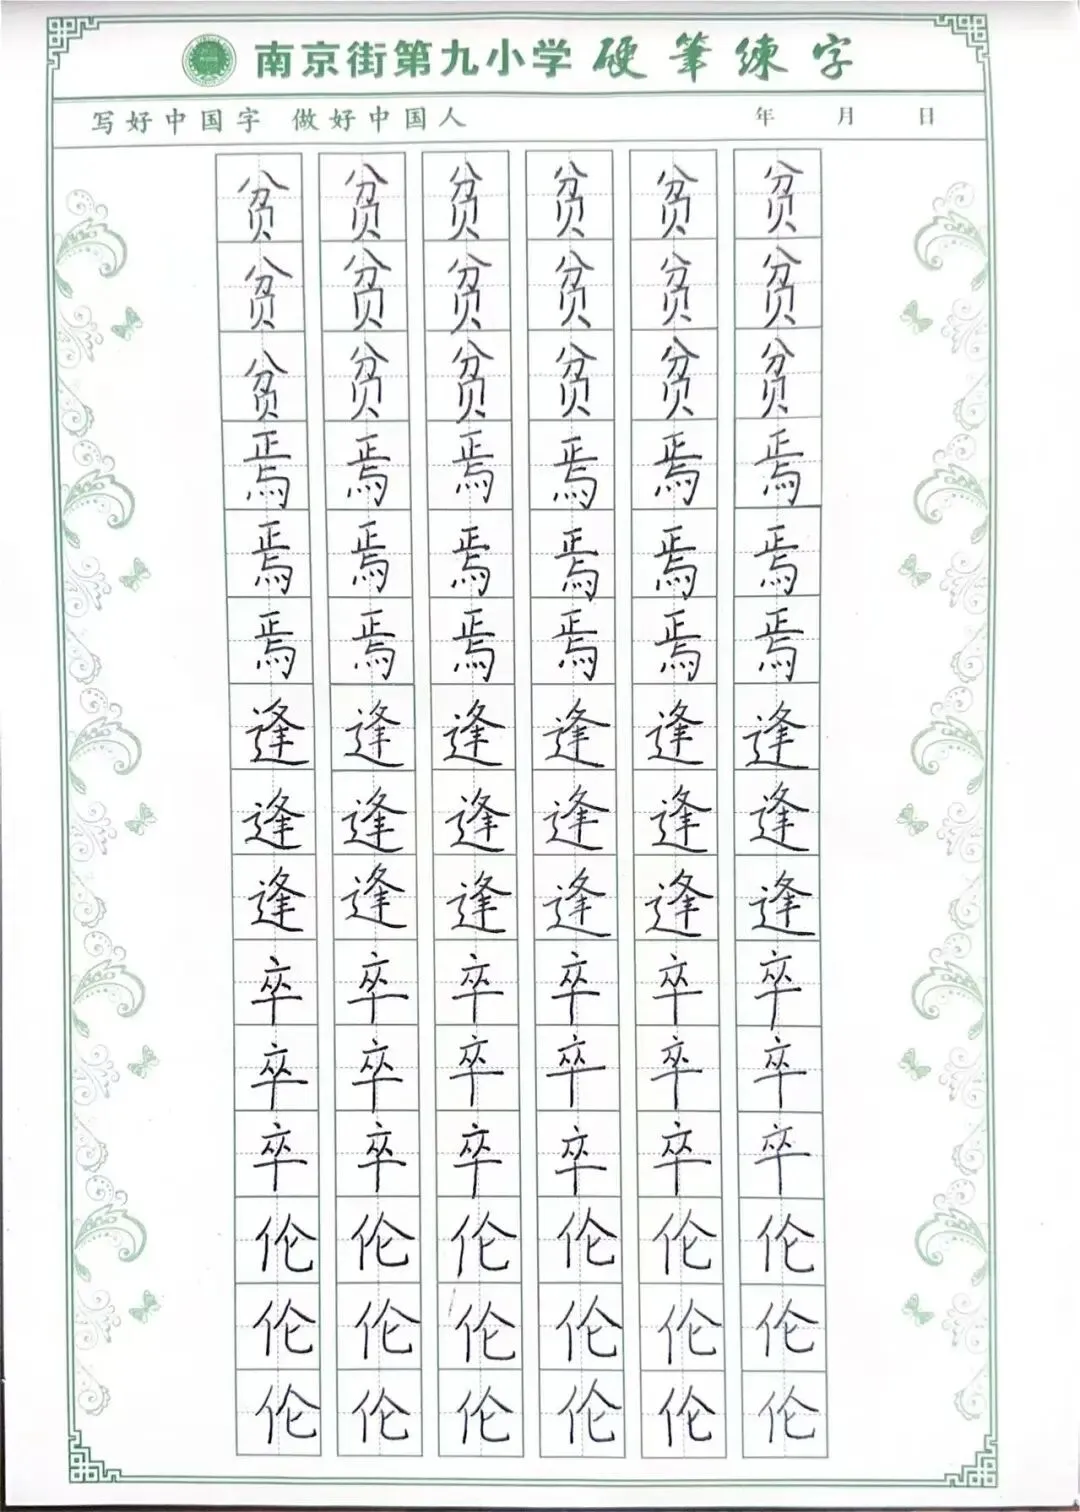 南京街第九小学 硬筆練字
写好中国字 做好中国人 年 月 日
贫 贫 贫 贫 贫 贫
贫 贫 贫 贫 贫 贫
贫 贫 贫 贫 贫 贫
焉 焉 焉 焉 焉 焉
焉 焉 焉 焉 焉 焉
焉 焉 焉 焉 焉 焉
逢 逢 逢 逢 逢 逢
逢 逢 逢 逢 逢 逢
逢 逢 逢 逢 逢 逢
卒 卒 卒 卒 卒 卒
卒 卒 卒 卒 卒 卒
卒 卒 卒 卒 卒 卒
伦 伦 伦 伦 伦 伦
伦 伦 伦 伦 伦 伦
伦 伦 伦 伦 伦 伦